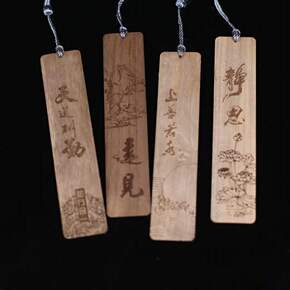 天道酬勤
遠見
上善若水
靜思